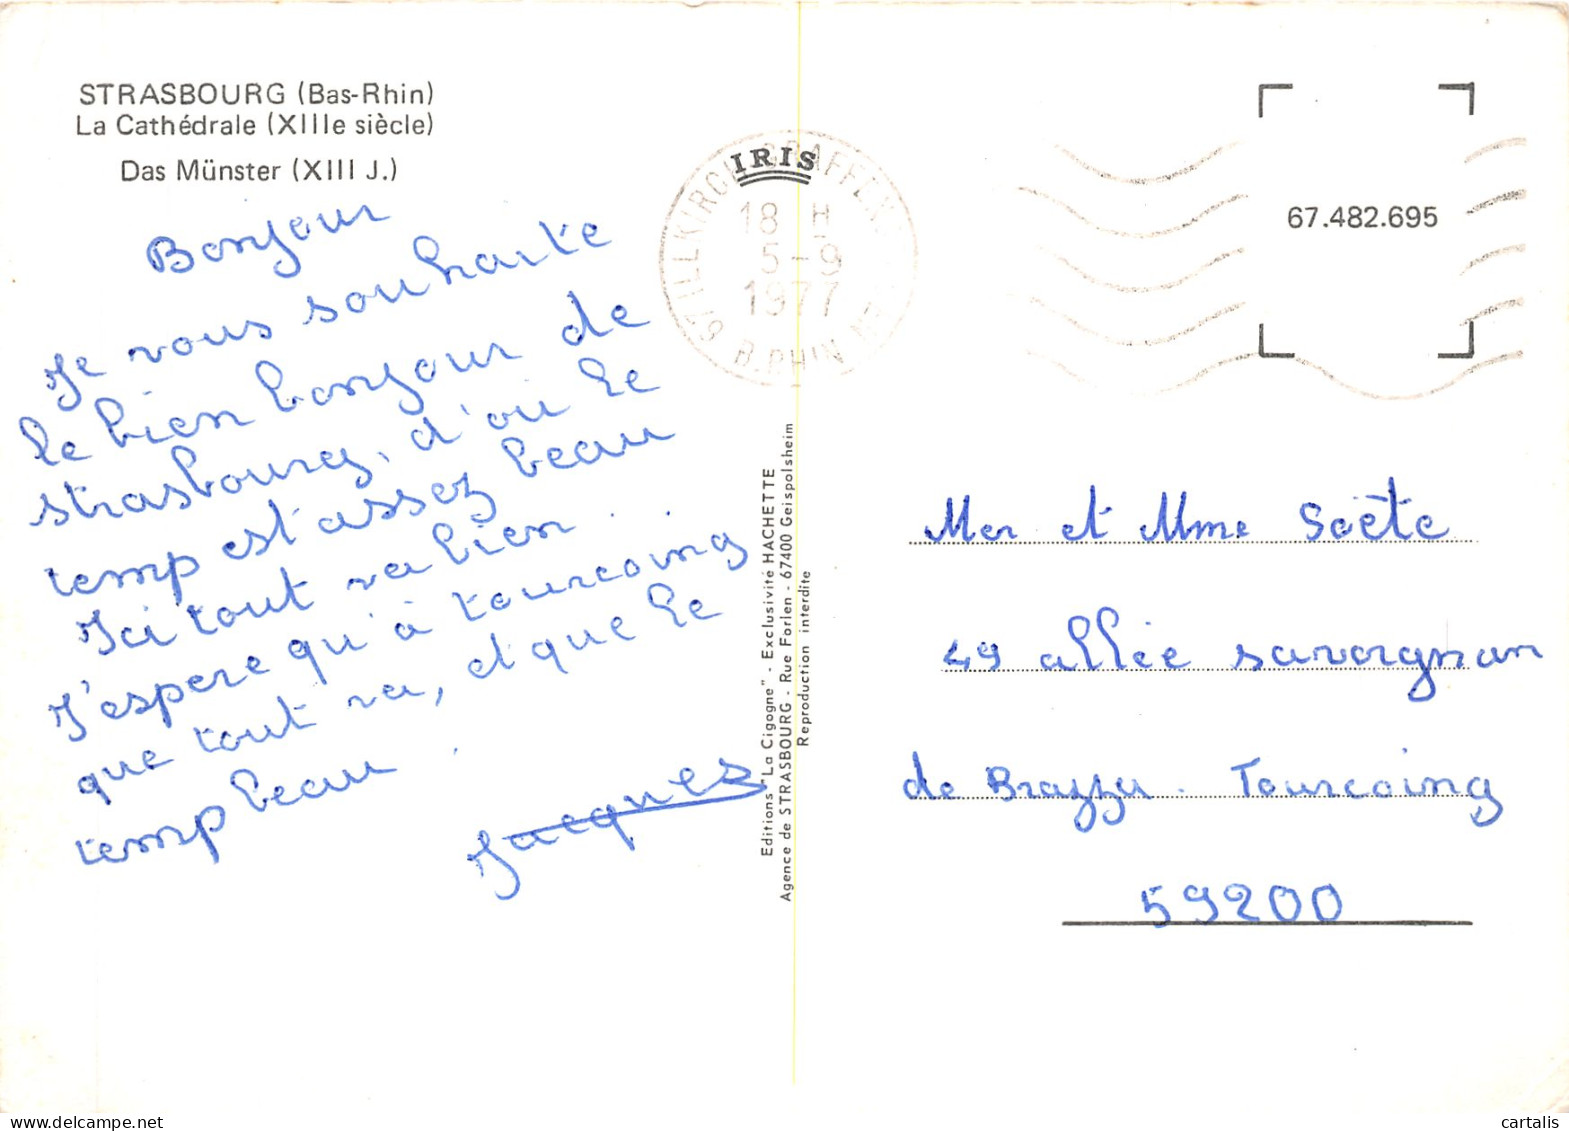 STRASBOURG (Bas-Rhin)
La Cathédrale (XIIIe siècle)
Das Münster (XIII J.)
Bonjour
Je vous souhaite
le bien bonjour de
Strasbourg, d'ou le
temp est assez beau
Ici tout va bien.
J'espere qu'à tourcoing
que tout va, et que le
temp beau.
Jacques
IRIS
67 ILLKIRCH GRAFFEN
B. RHIN
18 H
5-9
1977
67.482.695
Editions "La Cigogne" - Exclusivité HACHETTE
Agence de STRASBOURG - Rue Forlen - 67400 Geispolsheim
Reproduction interdite
Mer et Mme Soëte
49 allée savorgnan
de Brazza. Tourcoing
59200
delcampe.net
cartalis